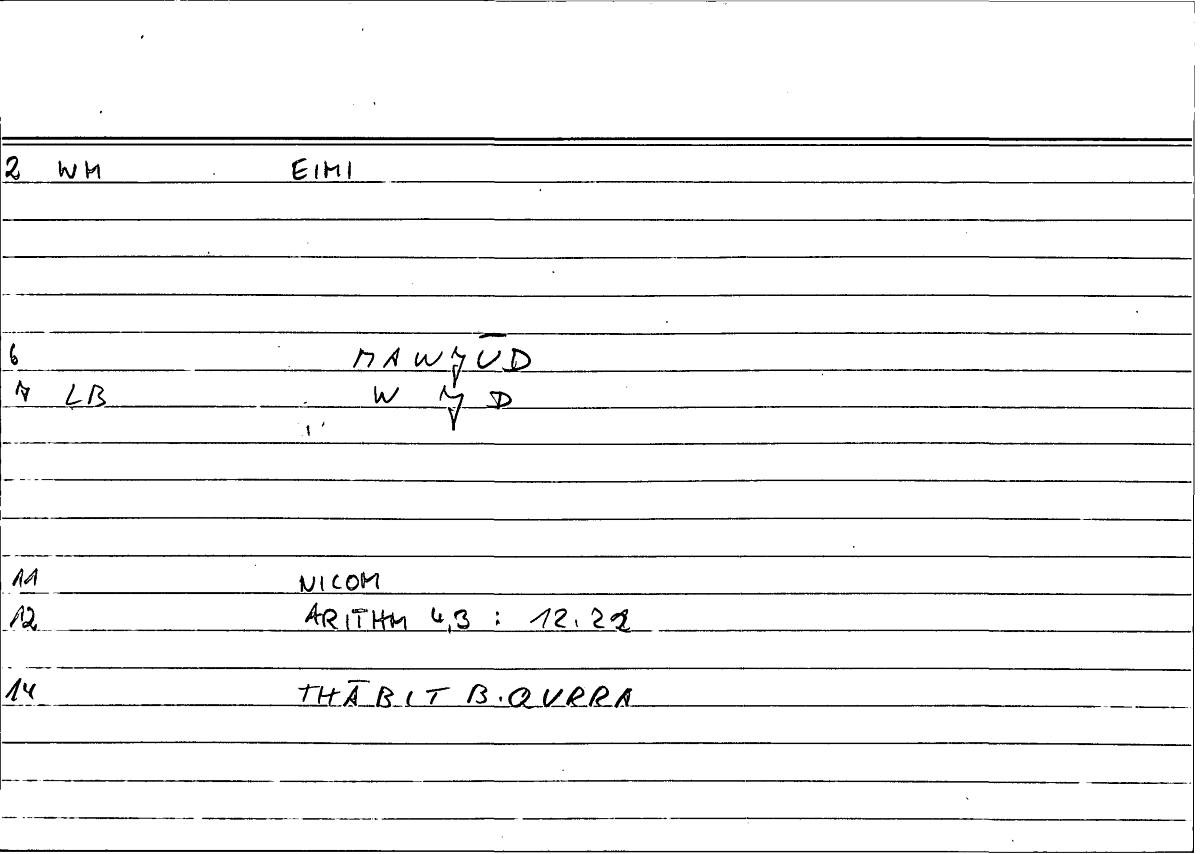 2 WM EIMI
6 MAWǦŪD
7 LB W Ǧ D
11 NICOM
12 ARITHM 4,3 : 12.22
14 THĀBIT B.QURRA